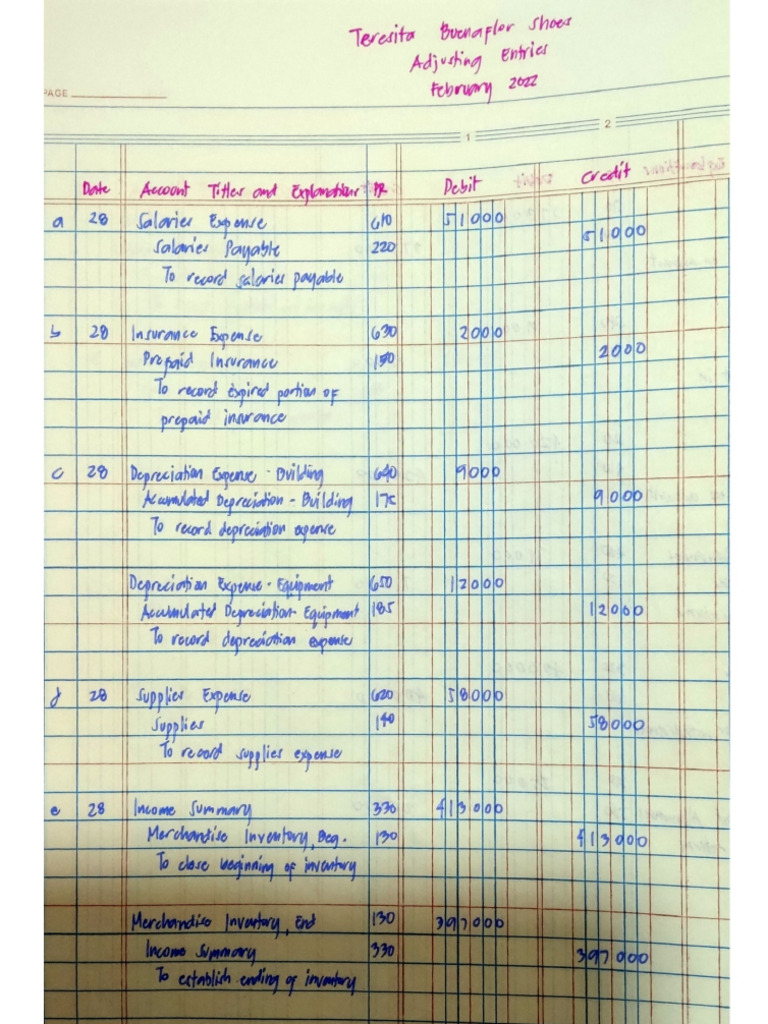 Teresita Buenaflor Shoes
Adjusting Entries
February 2022
PAGE
1 2
Date Account Titles and Explanations PR Debit Credit
a 28 Salaries Expense 610 51000
Salaries Payable 220 51000
To record salaries payable
b 28 Insurance Expense 630 2000
Prepaid Insurance 150 2000
To record expired portion of
prepaid insurance
c 28 Depreciation Expense - Building 640 9000
Accumulated Depreciation - Building 175 9000
To record depreciation expense
Depreciation Expense - Equipment 650 12000
Accumulated Depreciation - Equipment 185 12000
To record depreciation expense
d 28 Supplies Expense 620 58000
Supplies 140 58000
To record supplies expense
e 28 Income Summary 330 413000
Merchandise Inventory, Beg. 130 413000
To close beginning of inventory
Merchandise Inventory, End 130 397000
Income Summary 330 397000
To establish ending of inventory